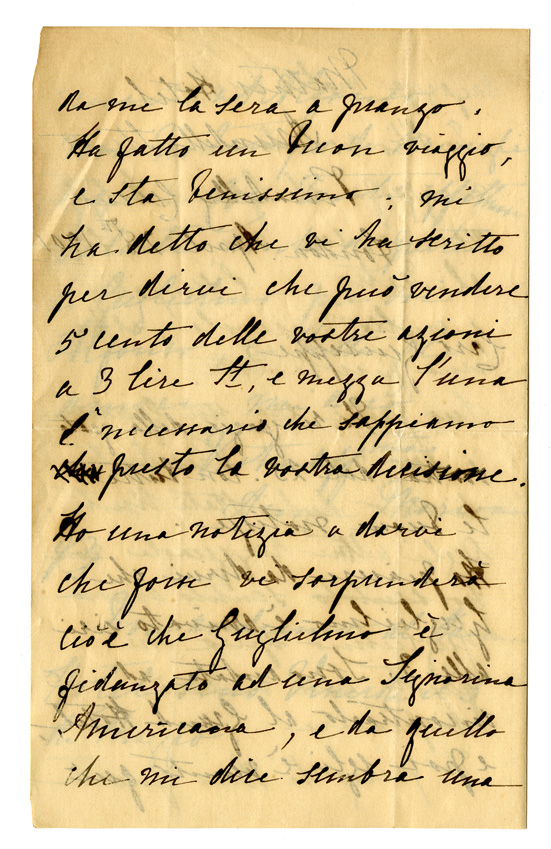 da me la sera a pranzo.
Ha fatto un buon viaggio,
e sta benissimo; mi
ha detto che vi ha scritto
per dirvi che può vendere
5 cento delle vostre azioni
a 3 lire St, e mezza l'una
E' necessario che sappiamo
presto la vostra decisione.
Ho una notizia a darvi
che forse vi sorprenderà
cioè che Guglielmo è
fidanzato ad una Signorina
Americana, e da quello
che mi dice sembra una